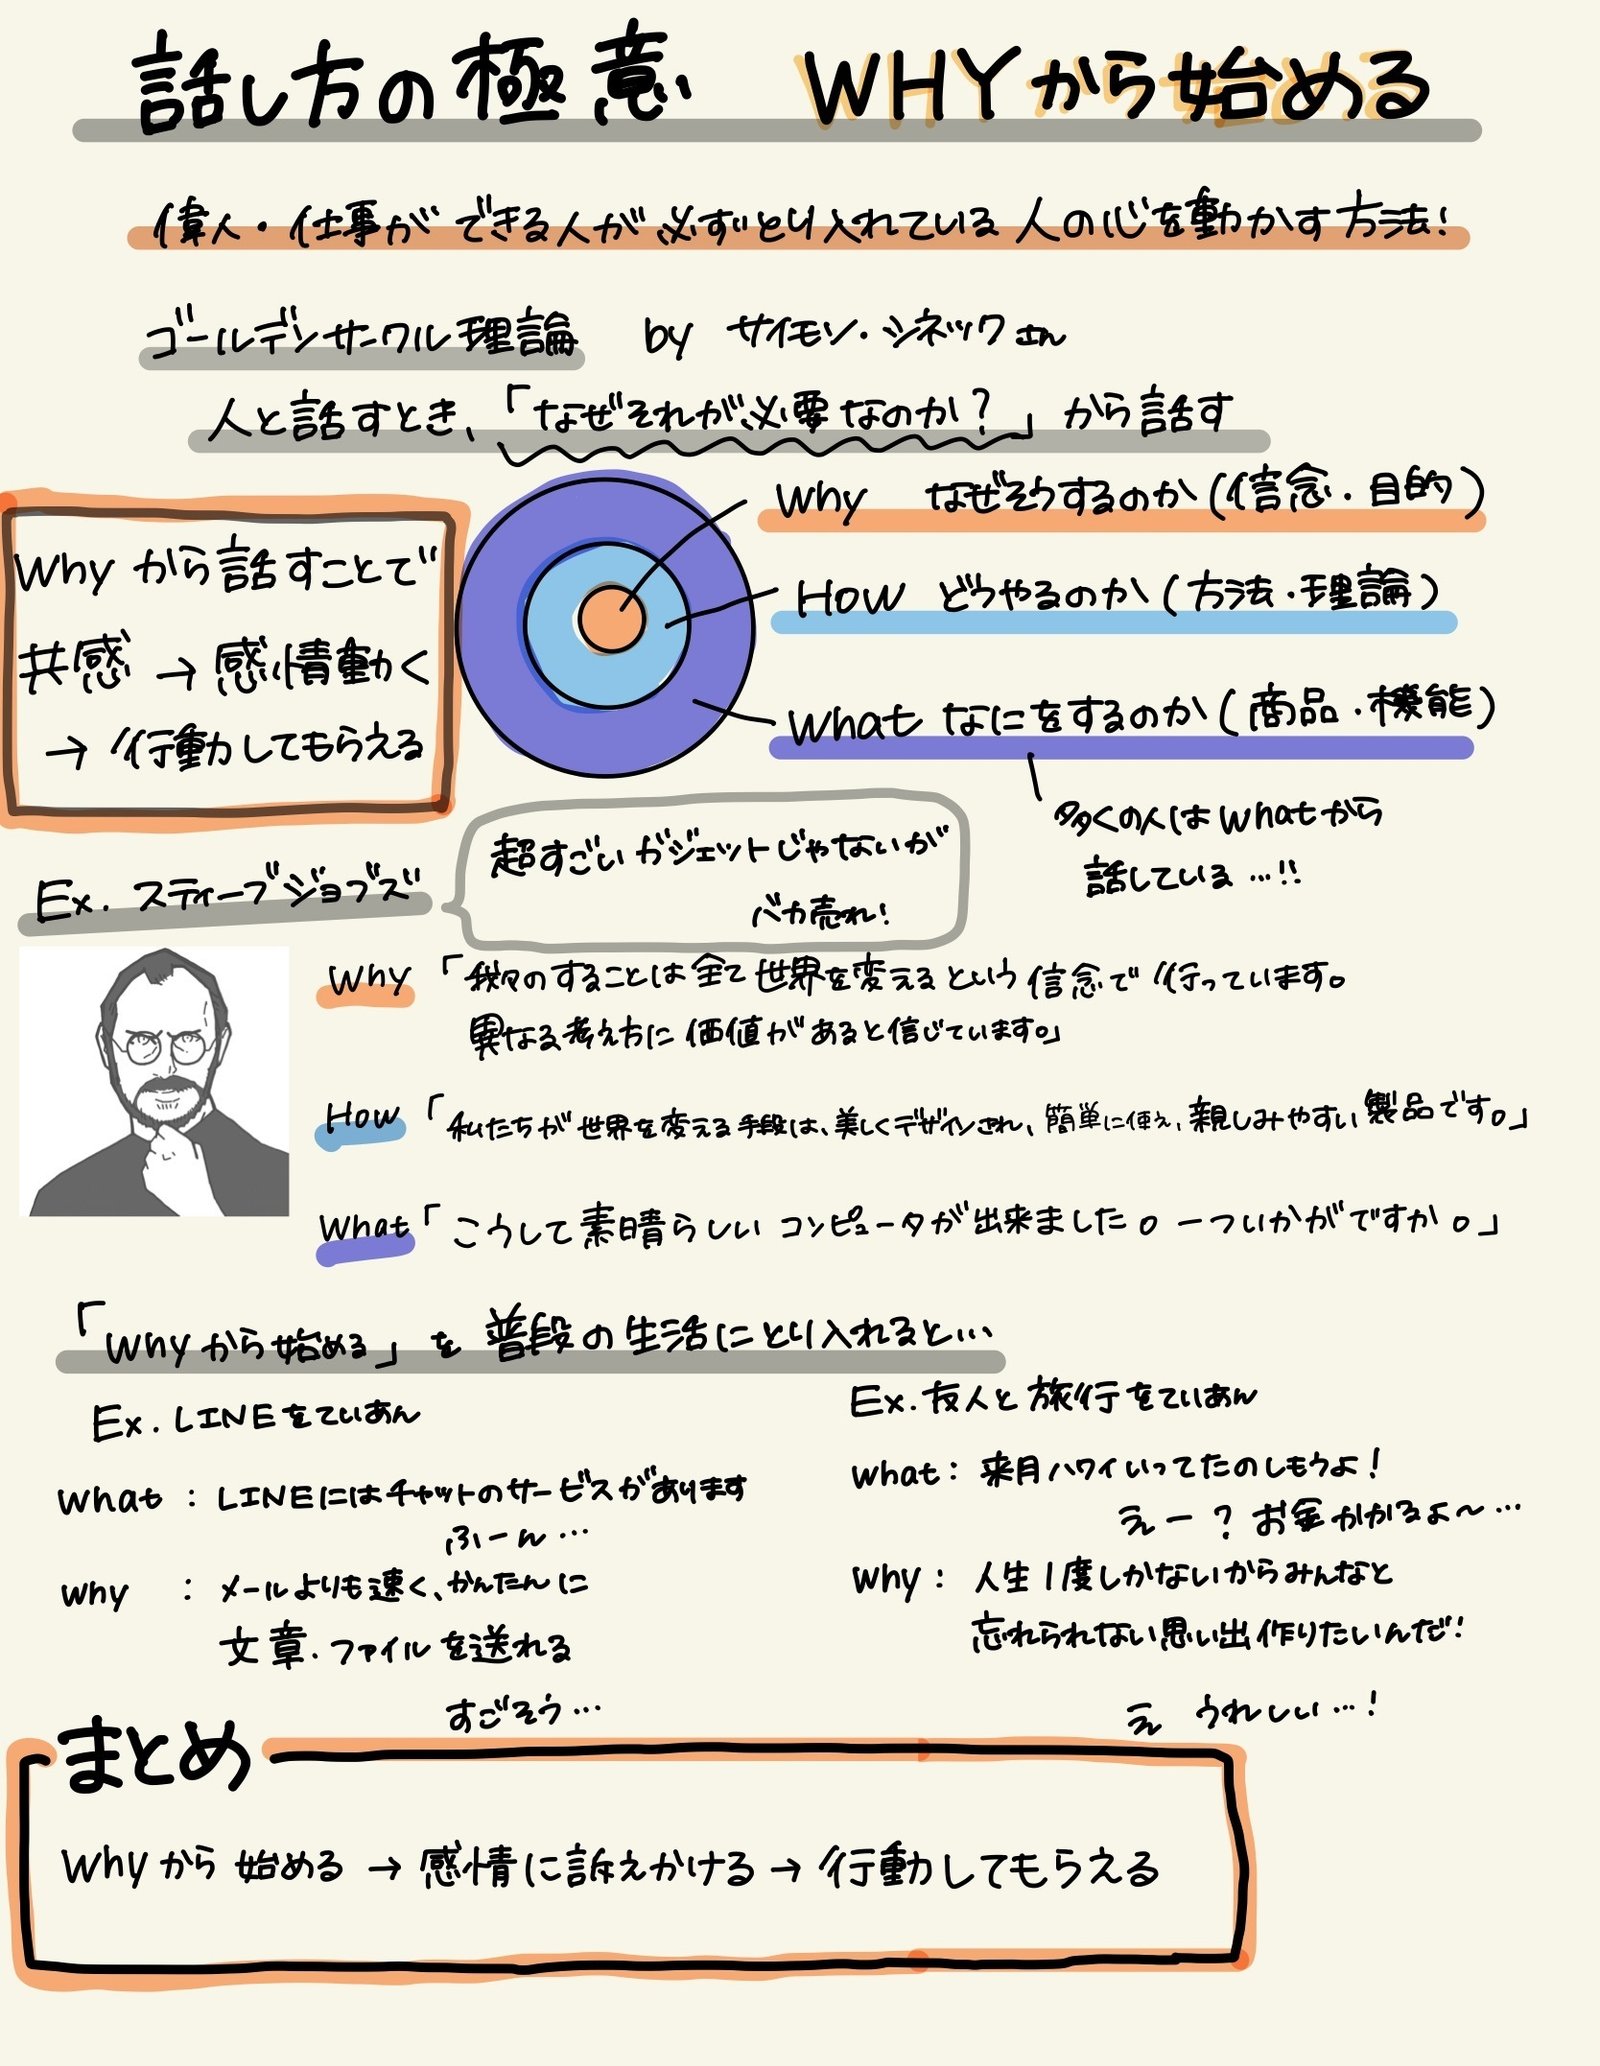 話し方の極意 WHYから始める
偉人・仕事ができる人が必ずとり入れている人の心を動かす方法!
ゴールデンサークル理論 by サイモン・シネックさん
人と話すとき、「なぜそれが必要なのか?」から話す
Why なぜそうするのか(信念・目的)
How どうやるのか(方法・理論)
What なにをするのか(商品・機能)
多くの人はwhatから
話している…!!
Whyから話すことで
共感→感情動く
→行動してもらえる
Ex. スティーブジョブズ
超すごいガジェットじゃないが
バカ売れ!
Why「我々のすることは全て世界を変えるという信念で行っています。
異なる考え方に価値があると信じています。」
How「私たちが世界を変える手段は、美しくデザインされ、簡単に使え、親しみやすい製品です。」
What「こうして素晴らしいコンピュータが出来ました。一ついかがですか。」
「Whyから始める」を普段の生活にとり入れると…
Ex. LINEをていあん
what : LINEにはチャットのサービスがあります
ふーん…
why : メールよりも速く、かんたんに
文章・ファイルを送れる
すごそう…
Ex. 友人と旅行をていあん
what : 来月ハワイいってたのしもうよ!
えー?お金かかるよ〜…
why : 人生1度しかないからみんなと
忘れられない思い出作りたいんだ!
え うれしい…!
まとめ
Whyから始める→感情に訴えかける→行動してもらえる